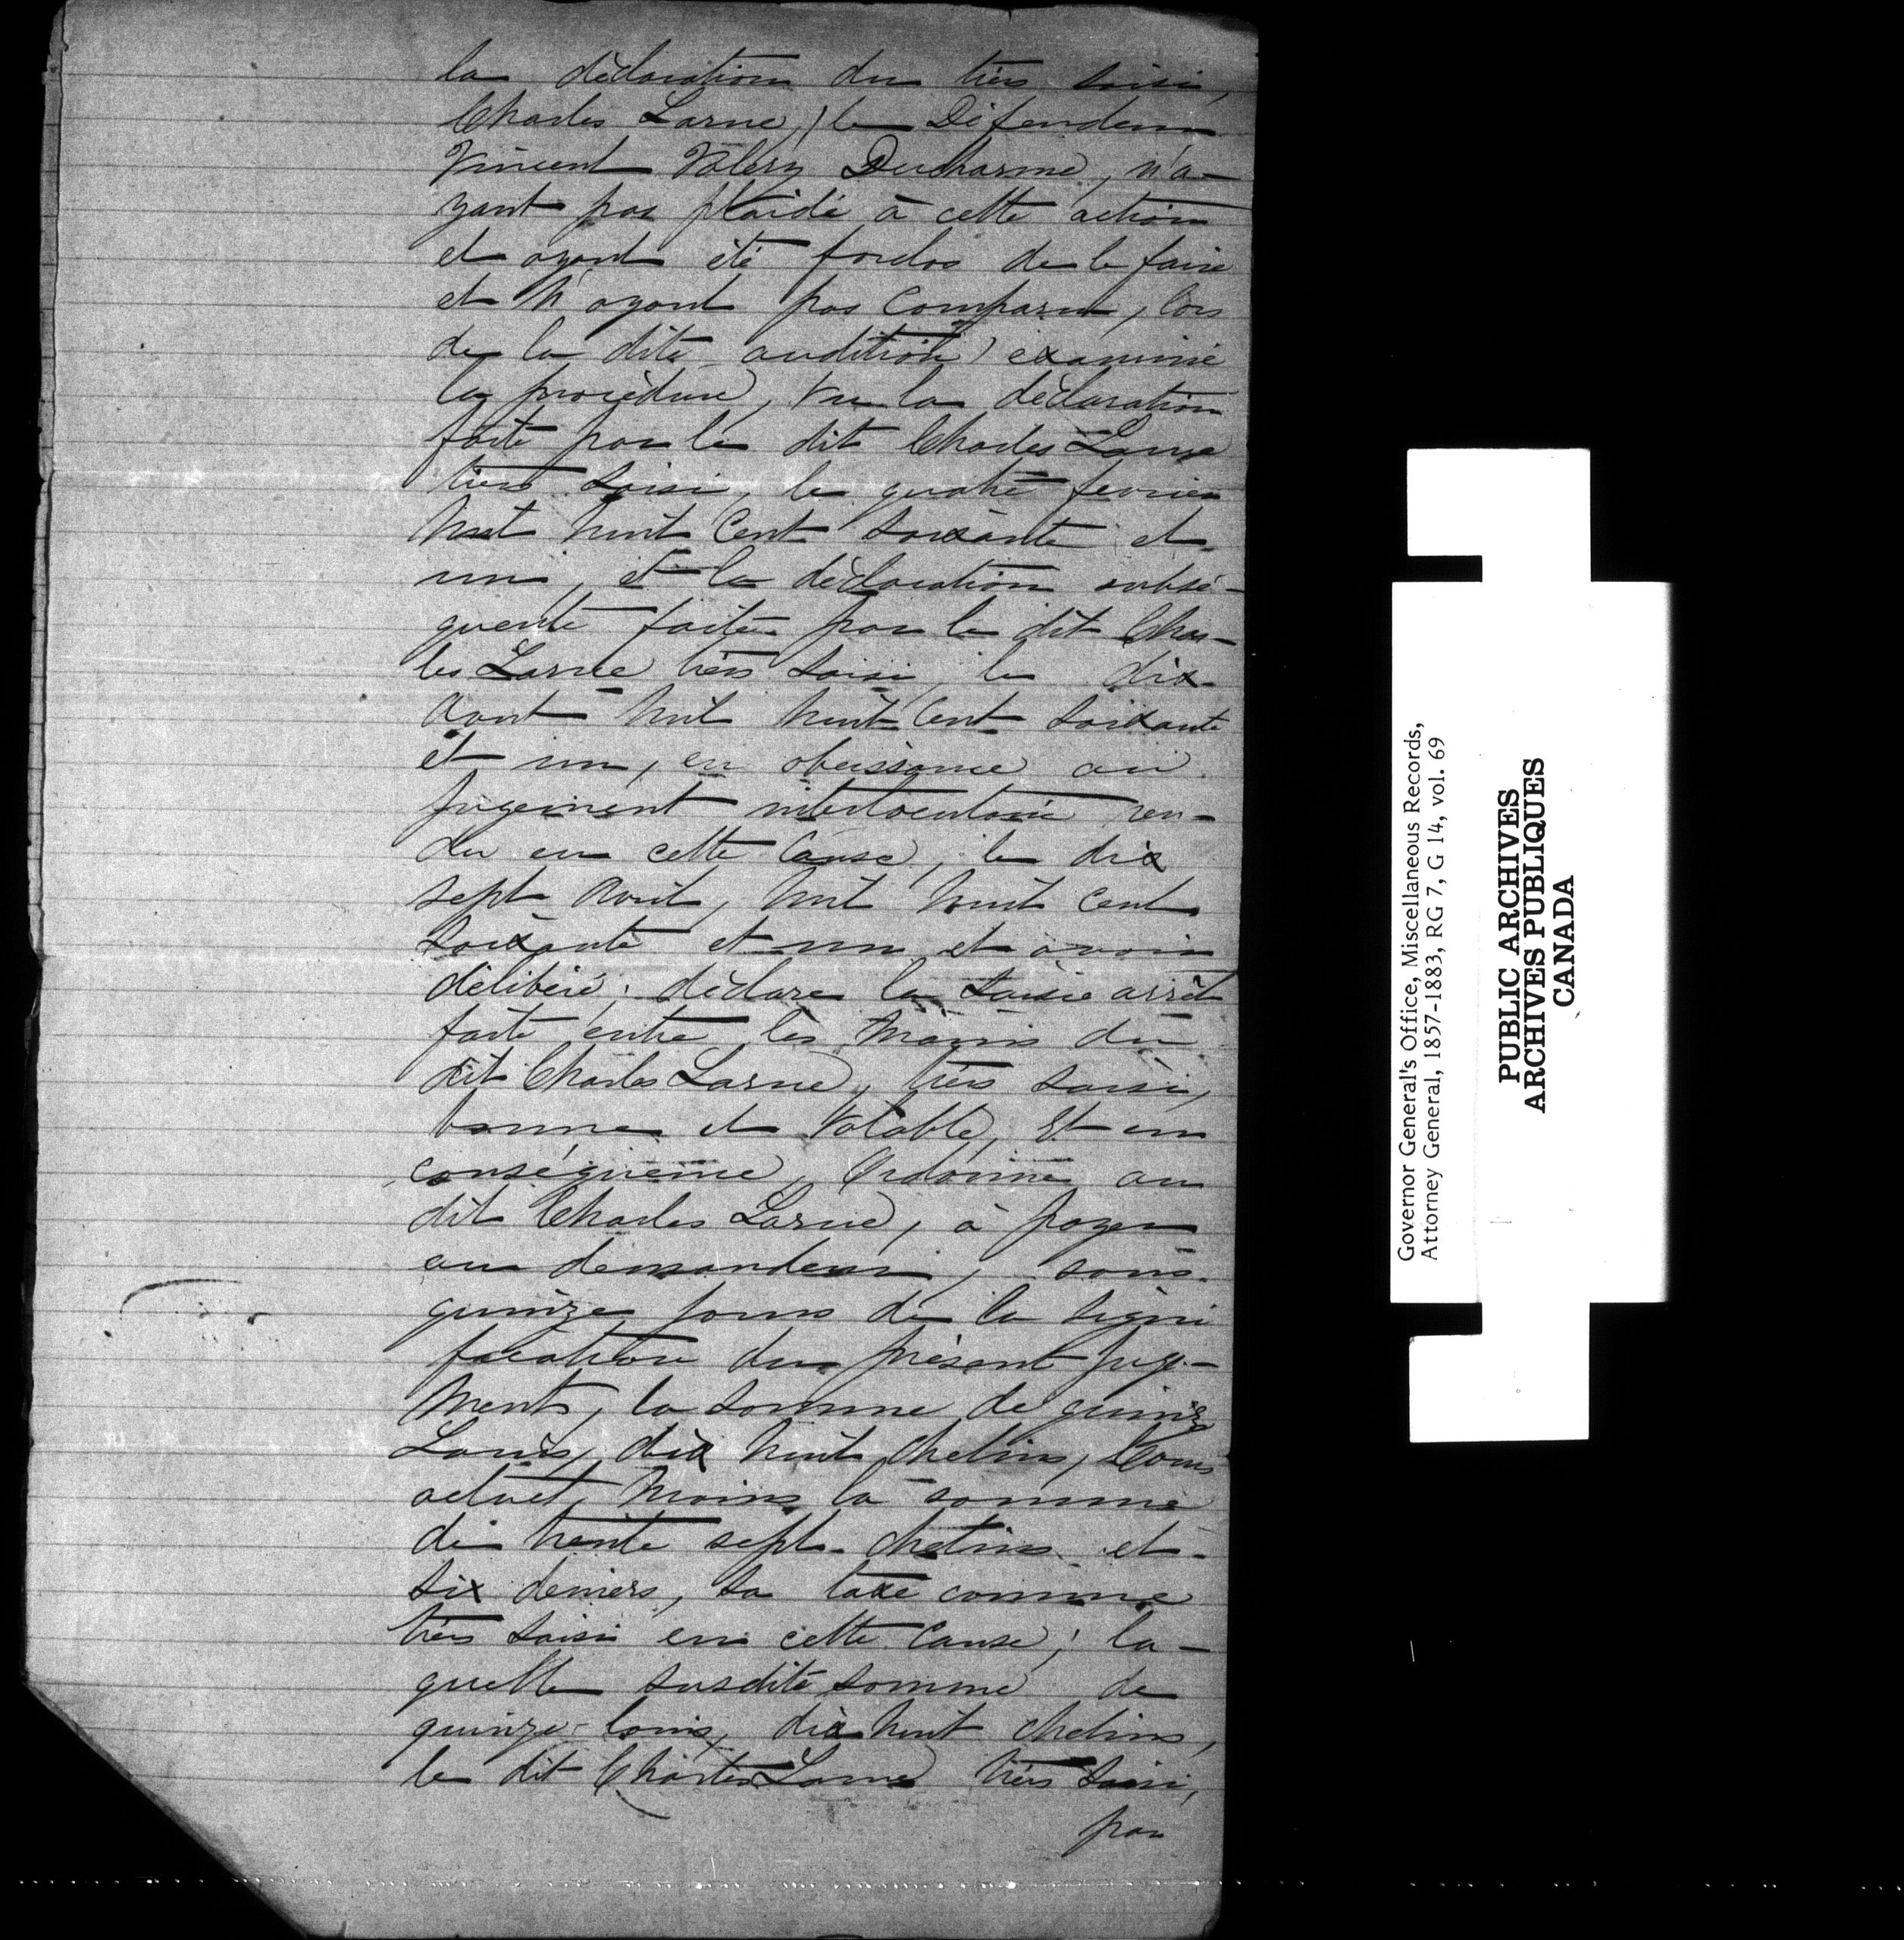 la déclaration du tiers saisi,
Charles Larue,) le Défendeur
Vincent Valery Ducharme, n'a-
yant pas plaidé à cette action
et ayant été forclos de le faire
et n'ayant pas comparu, lors
de la dite audition) examiné
la procédure, vu la déclaration
faite par le dit Charles Larue
tiers saisi, le quatre fevrier
mil huit cent soixante et
un, et la déclaration subsé-
quente faite par le dit Char-
les Larue tiers saisi, le dix
Aout mil huit cent soixante
et un, en obeissance au
jugement interlocutoire ren-
du en cette Cause, le dix
sept Avril, mil huit cent
soixante et un et avoir
délibéré; déclare la Saisie arrêt
faite entre les mains du
dit Charles Larue, tiers saisi,
bonne et valable, Et en
conséquence, Ordonne au
dit Charles Larue, à payer
au demandeur, sous
quinze jours de la signi
fication du présent juge-
ment, la somme de quinze
Louis, dix huit chelins, Cours
actuel, moins la somme
de trente sept chelins et
six deniers, sa taxe comme
tiers saisi en cette Cause; la-
quelle susdite somme de
quinze louis, dix huit chelins,
le dit Charles Larue tiers saisi,
par
Governor General's Office, Miscellaneous Records,
Attorney General, 1857-1883, RG 7, G 14, vol. 69
PUBLIC ARCHIVES
ARCHIVES PUBLIQUES
CANADA